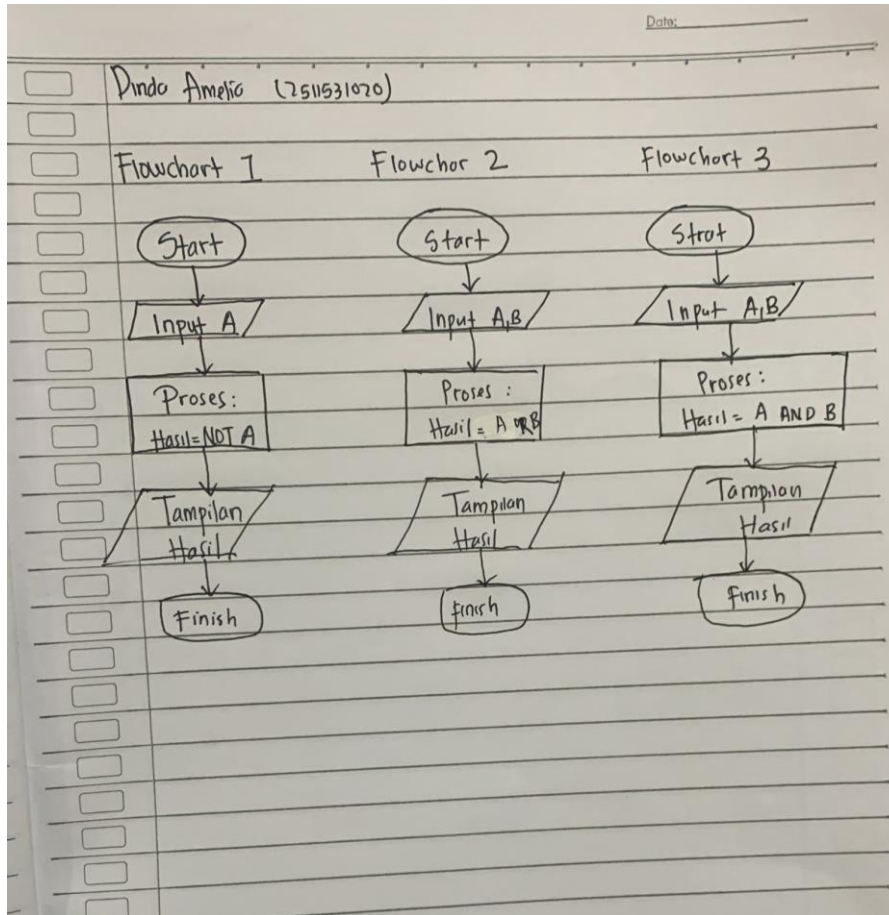 Date:
Dinda Amelia (2511531020)
Flowchart 1
Flowchar 2
Flowchort 3
Start
Input A
Proses:
Hasil = NOT A
Tampilan
Hasil
Finish
Start
Input A,B
Proses :
Hasil = A OR B
Tampilan
Hasil
finish
Strat
Input A,B
Proses :
Hasil = A AND B
Tampilan
Hasil
finish